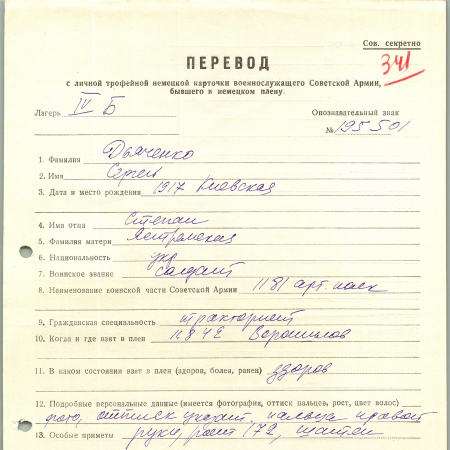 Сов. секретно
341
ПЕРЕВОД
с личной трофейной немецкой карточки военнослужащего Советской Армии,
бывшего в немецком плену.
Лагерь IV Б
Опознавательный знак
№ 195501
1. Фамилия Дьяченко
2. Имя Сергей
3. Дата и место рождения 1917 Киевская
4. Имя отца Степан
5. Фамилия матери
6. Национальность укр
7. Воинское звание солдат
8. Наименование воинской части Советской Армии 1181 арт. полк
9. Гражданская специальность тракторист
10. Когда и где взят в плен 11.8.42 Ворошилов
11. В каком состоянии взят в плен (здоров, болен, ранен) здоров
12. Подробные персональные данные (имеется фотография, оттиск пальцев, рост, цвет волос)
фото, оттиск указат. пальца правой
13. Особые приметы руки, рост 172, шатен